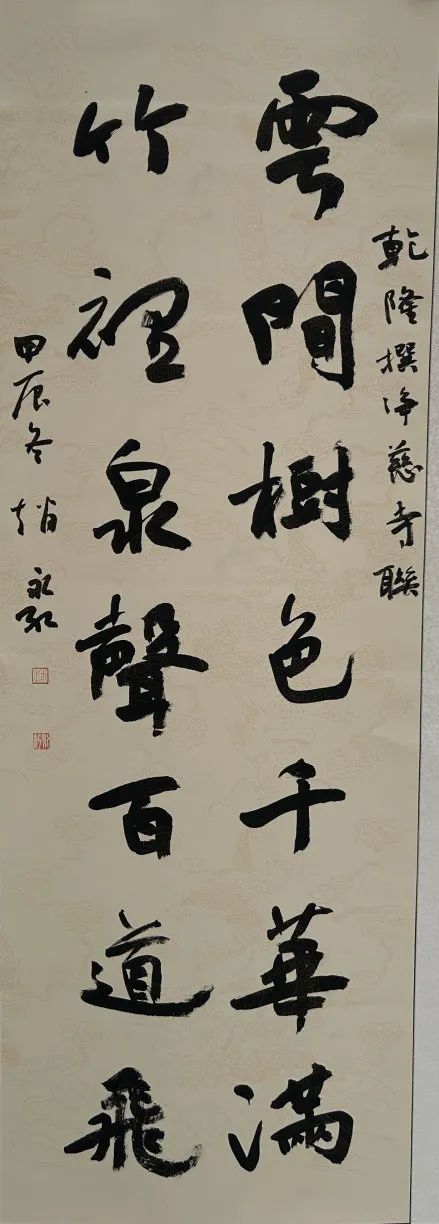 乾隆撰淨慈寺聯
雲間樹色千華滿
竹裡泉聲百道飛
甲辰冬 趙永